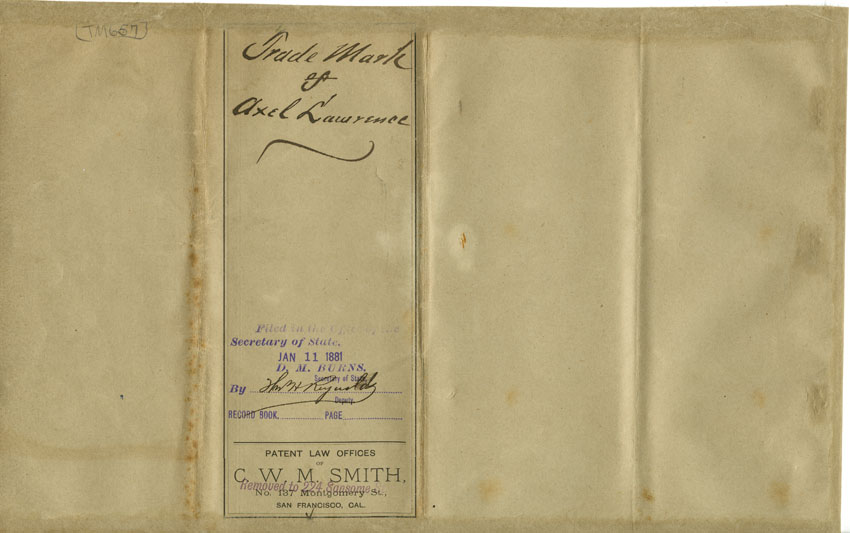 [TM687]
Trade Mark
of
Axel Lawrence
Filed in the Office of the
Secretary of State,
JAN 11 1881
D. M. BURNS,
Secretary of State
By Thos H Reynolds
Deputy
RECORD BOOK, PAGE
PATENT LAW OFFICES
OF
C. W. M. SMITH,
Removed to 224 Sansome
No. 137 Montgomery St.,
SAN FRANCISCO, CAL.